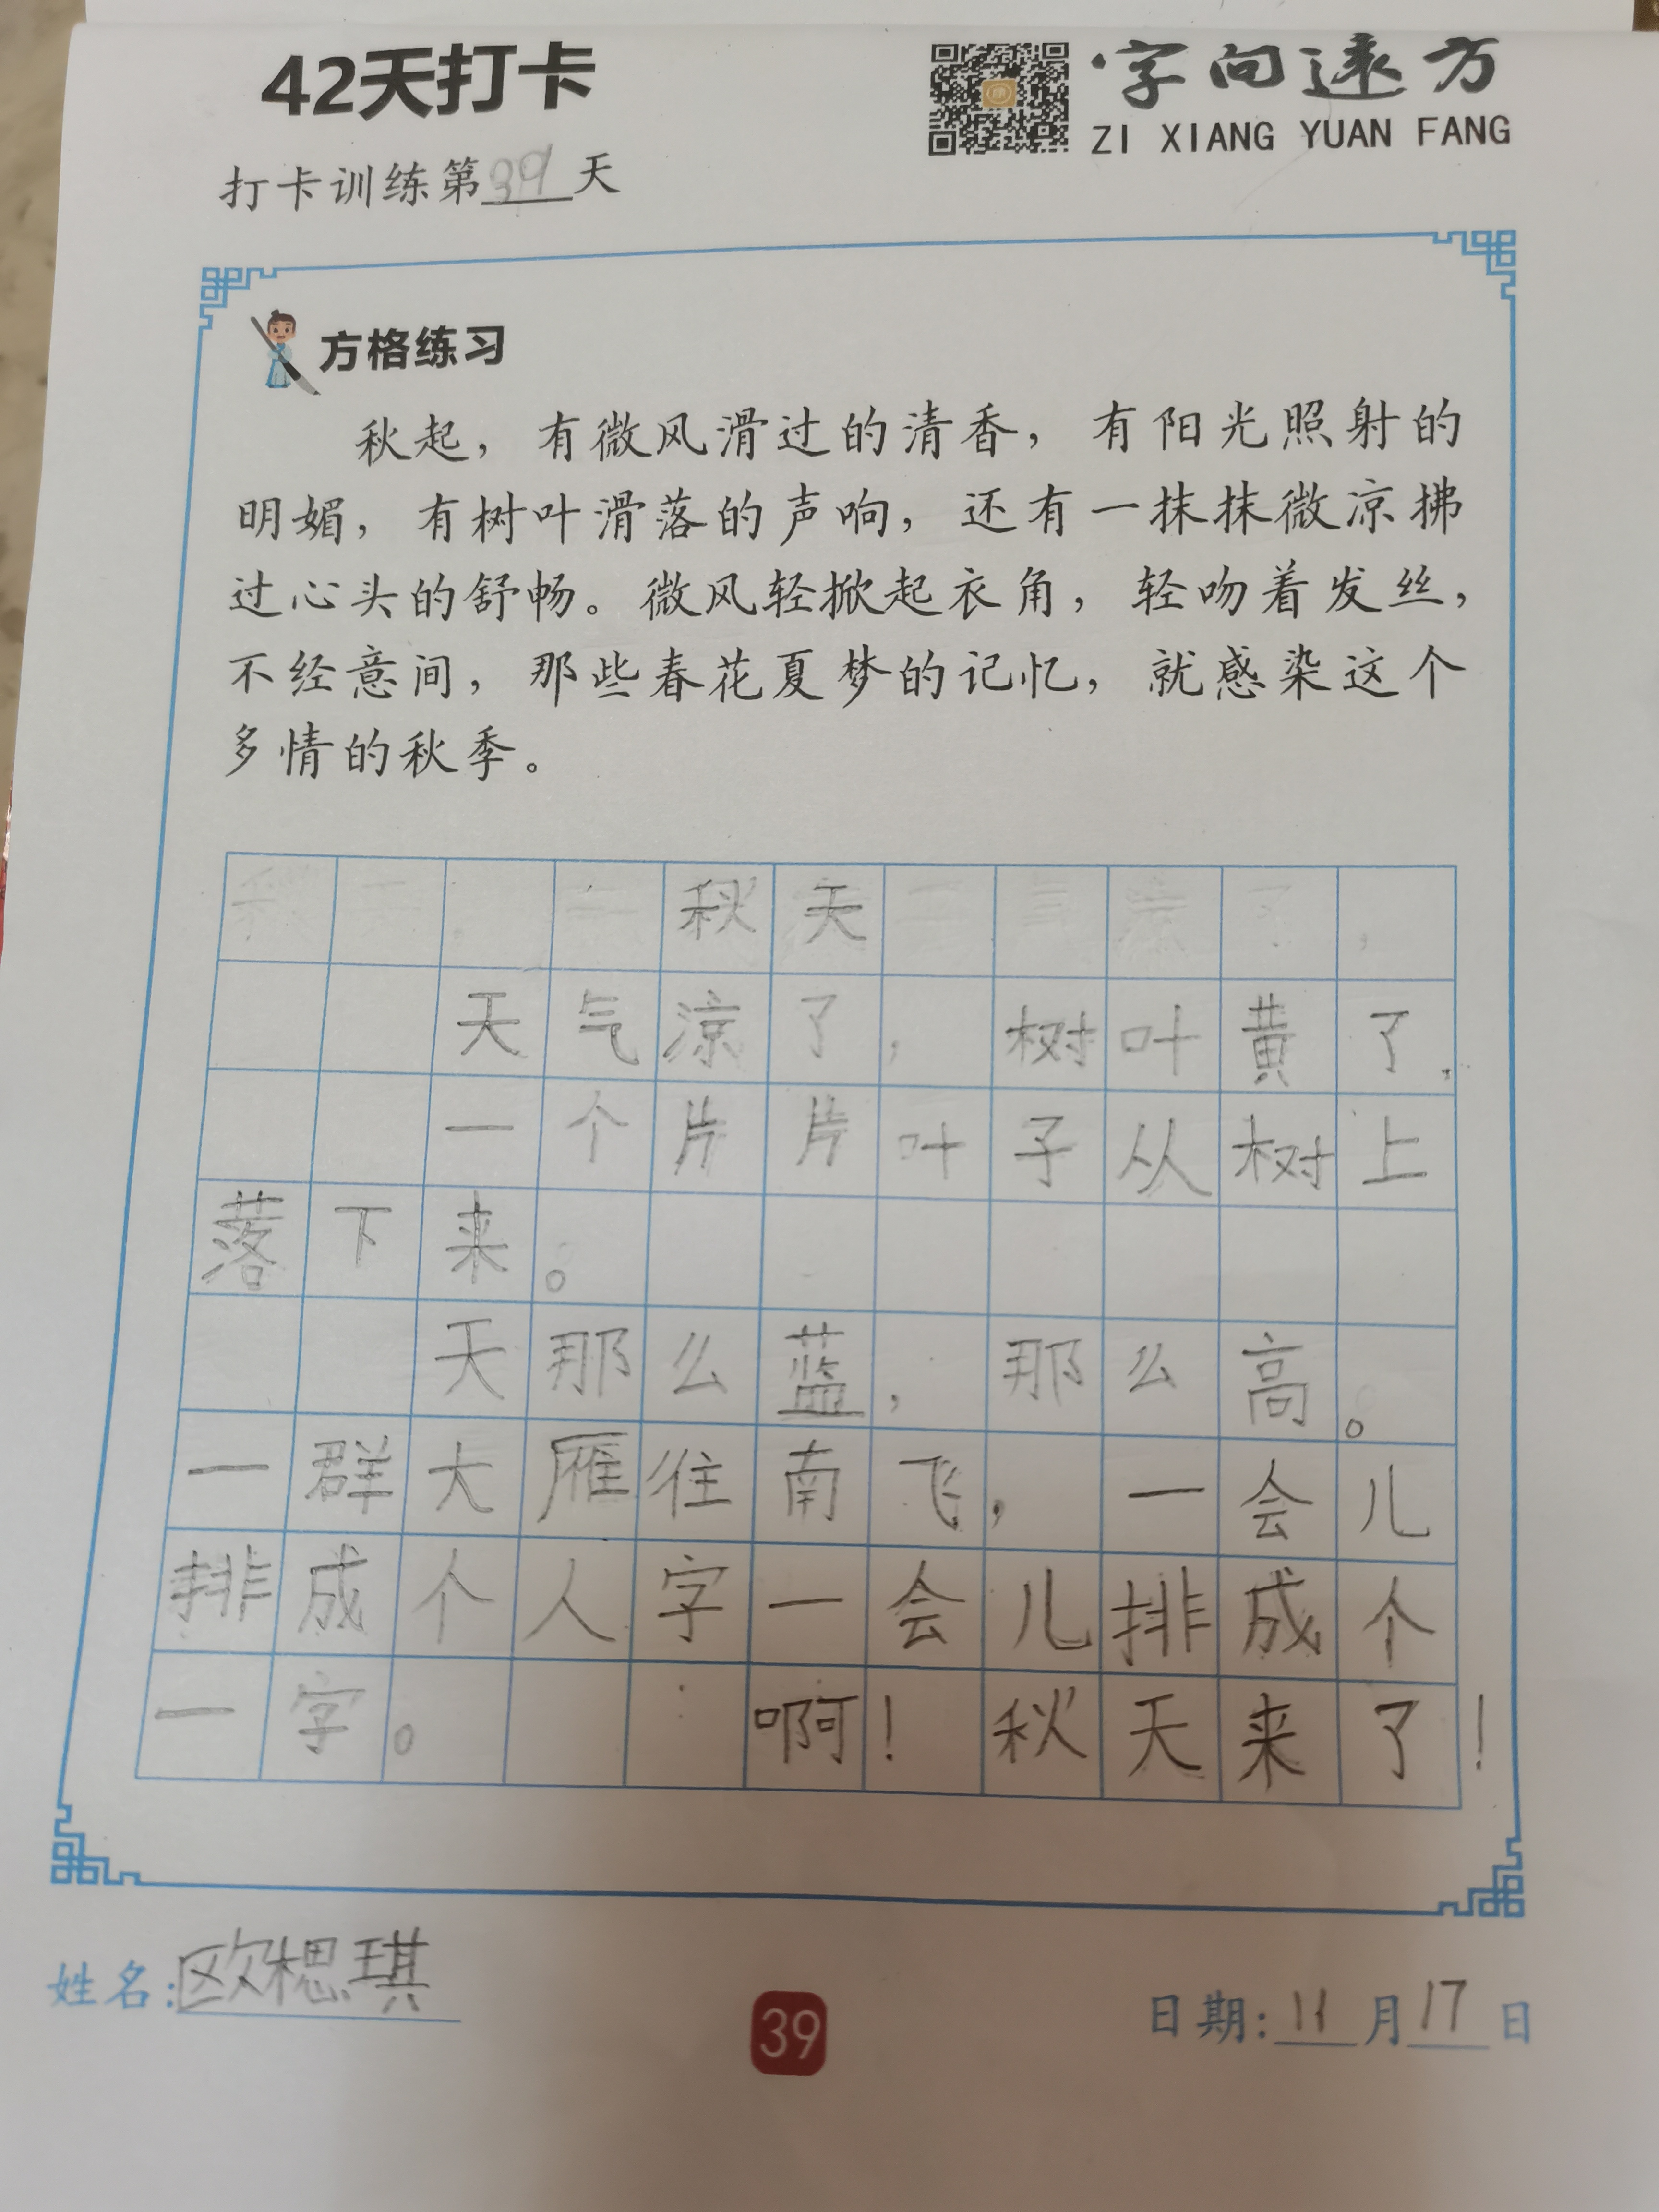 42天打卡
字向远方
ZI XIANG YUAN FANG
打卡训练第39天
方格练习
秋起，有微风滑过的清香，有阳光照射的
明媚，有树叶滑落的声响，还有一抹抹微凉拂
过心头的舒畅。微风轻掀起衣角，轻吻着发丝，
不经意间，那些春花夏梦的记忆，就感染这个
多情的秋季。
秋天
天气凉了，树叶黄了，
一个片片叶子从树上
落下来。
天那么蓝，那么高。
一群大雁往南飞，一会儿
排成个人字一会儿排成个
一字。 啊！秋天来了！
姓名：欧楒琪
39
日期：11月17日